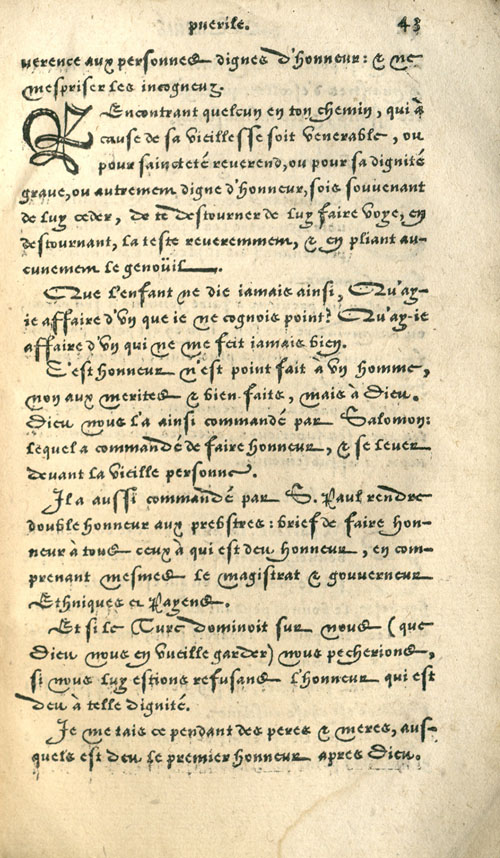 puerile. 43
uerence aux personnes dignes d'honneur: & ne
mespriser les incogneuz.
REncontrant quelcun en ton chemin, qui à
cause de sa vieillesse soit venerable, ou
pour saincteté reuerend, ou pour sa dignité
graue, ou autrement digne d'honneur, sois souuenant
de luy ceder, de te destourner de luy faire voye, en
destournant, la teste reueremment, & en pliant au-
cunement le genoüil.
Que l'enfant ne die iamais ainsi, Qu'ay-
ie affaire d'vn que ie ne cognois point? Qu'ay-ie
affaire d'vn qui ne me feit iamais bien.
C'est honneur n'est point fait à vn homme,
non aux merites & bien-faits, mais à Dieu.
Dieu nous l'a ainsi commandé par Salomon:
lequel a commandé de faire honneur, & se leuer
deuant la vieille personne.
Il a aussi commandé par S. Paul rendre
double honneur aux prebstres: brief de faire hon-
neur à tous ceux à qui est deu honneur, en com-
prenant mesmes le magistrat & gouuerneur
Ethniques et Payens.
Et si le Turc dominoit sur nous (que
Dieu nous en vueille garder) nous pecherions,
si nous luy estions refusans l'honneur qui est
deu à telle dignité.
Je me tais ce pendant des peres & meres, aus-
quels est deu le premier honneur apres Dieu.